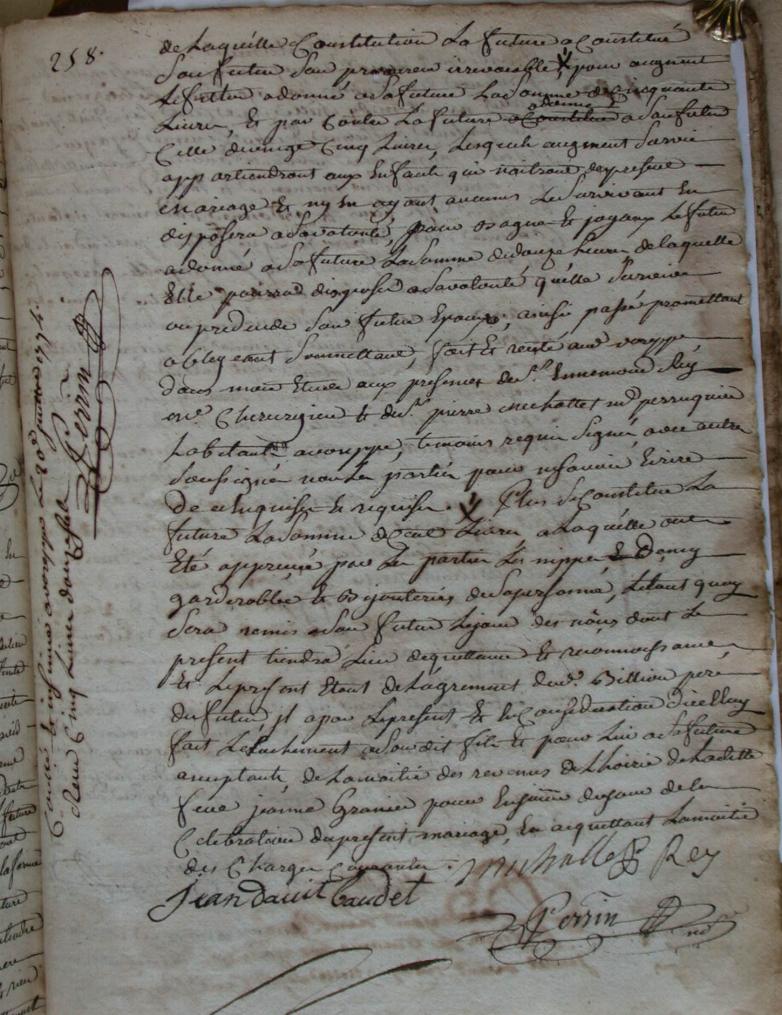 258.
de laquelle Constitution la future a Constitué
son futur son procureur irrevocable, pour augment
le futur a donné a sa future la somme de Cinquante
Livres, et par Contre la future a donné a son futur
Celle de vingt Cinq Livres, lesquels augment survie
appartiendront aux Enfants qui naitront du present
mariage et ny en ayant aucuns le Survivant en
disposera a sa volonté, pour bagues et joyaux le futur
a donné a sa future la somme de douze livres de laquelle
Elle pourra disposer a sa volonté quelle Survive
ou predecede son futur Epoux, ainsi passé promettant
obligeant soumettant, fait et recité aud. voreppe,
dans mon Etude aux presences de sr. Ennemond Rey
Chirurgien et de sr. pierre michallet md. perruquier
habitants a voreppe, temoins requis signés avec autre
soussigné non les parties pour ne savoir Ecrire
de ce Enquises et requises. Plus se Constitue la
future la somme de Cent Livres a laquelle ont
Eté appreciés par les parties les nippes
garderobbe et bijouteries de sa personne, le tout quoy
sera remis a son futur le jour des nôces dont le
present tiendra Lieu de quittance et reconnoissance,
Et le present Etant de l'agrement dud. Billion pere
du futur il a par le present et en Consideration d'icelluy
fait relachement a son dit fils et pour lui a sa future
acceptante, de la moitié des revenus de l'hoirie de ladite
feue jeanne Granier pour En jouir du jour de la
Celebration du present mariage, en acquittant la moitié
des Charges Courantes. Michallet Rey
Jean david Caudet
Perrin nore.
Controllé et insinué a voreppe le 20e janvier 1774.
Reçu Cinq Livres douze sols
Perrin